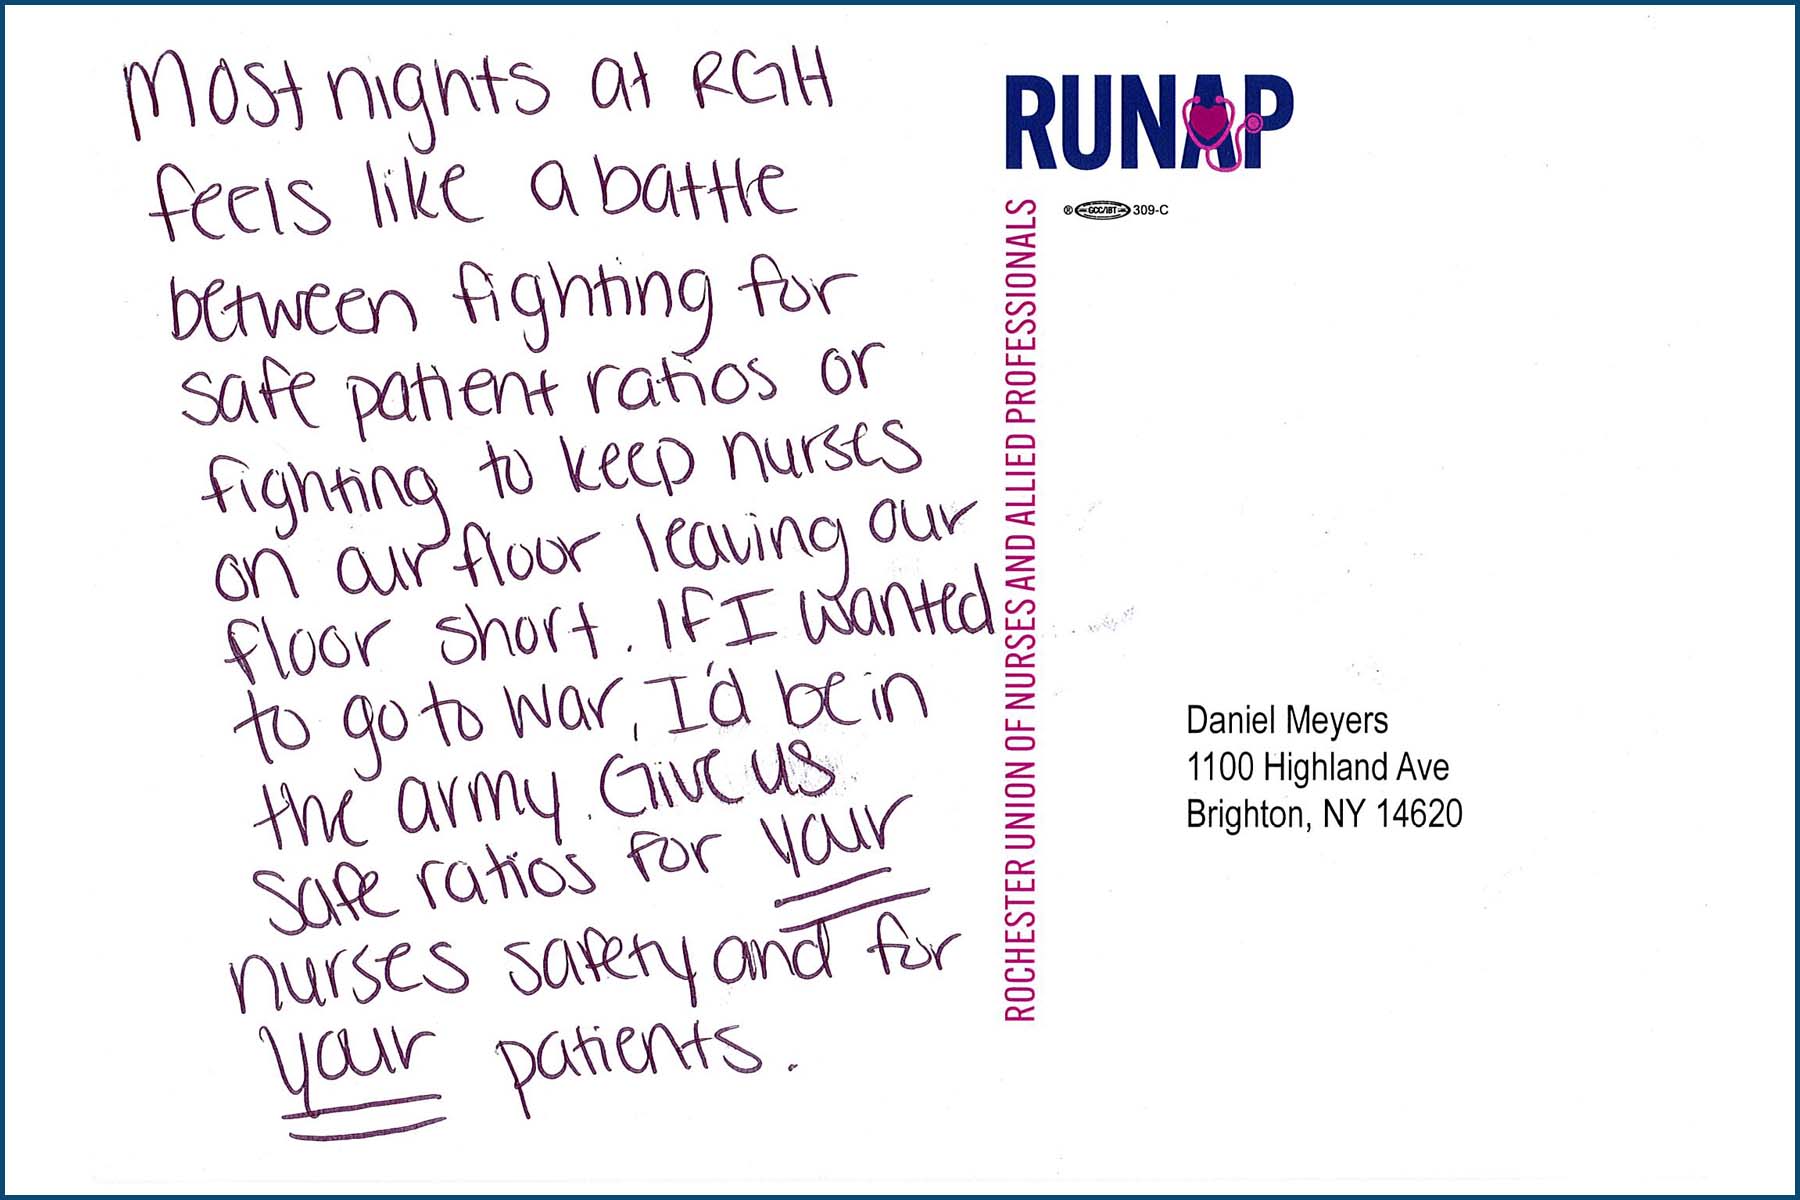 Most nights at RGH
feels like a battle
between fighting for
safe patient ratios or
fighting to keep nurses
on our floor leaving our
floor short. If I wanted
to go to war, I'd be in
the army. Give us
safe ratios for your
nurses safety and for
your patients.
RUNAP
® GCC/IBT 309-C
ROCHESTER UNION OF NURSES AND ALLIED PROFESSIONALS
Daniel Meyers
1100 Highland Ave
Brighton, NY 14620